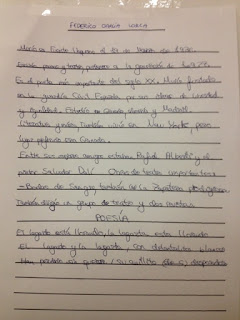 FEDERICO GARCÍA LORCA
Nació en Fuente Vaqueros el de de 1898.
Escribía poesía y teatro, pertenece a la generación de 1927.
Es el poeta más importante del siglo XX. Murió fusilado
en la guerra Civil Española por sus ideas de
y Estudió en Granada, y Madrid.
Literatura y , También vivió en New York, pero
luego regresó a Granada.
Entre sus mejores amigos estaban Rafael Alberti y el
pintor Salvador Dalí. Obras de teatro importantes
- Bodas de Sangre, también de la Zapatera prodigiosa
También dirigió un grupo de teatro y dos revistas
POESÍA
El lagarto está llorando, la lagarta está llorando
El lagarto y la lagarta, con delantalitos blancos
Han perdido sin querer su anillo de desposados